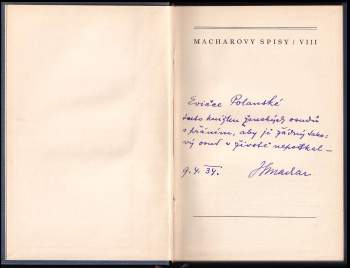 MACHAROVY SPISY / VIII
Evičce Polanské
tuto knížku ženských osudů
s přáním, aby jí žádný tako-
vý osud v životě nepotkal –
9. 4. 34. JSMachar